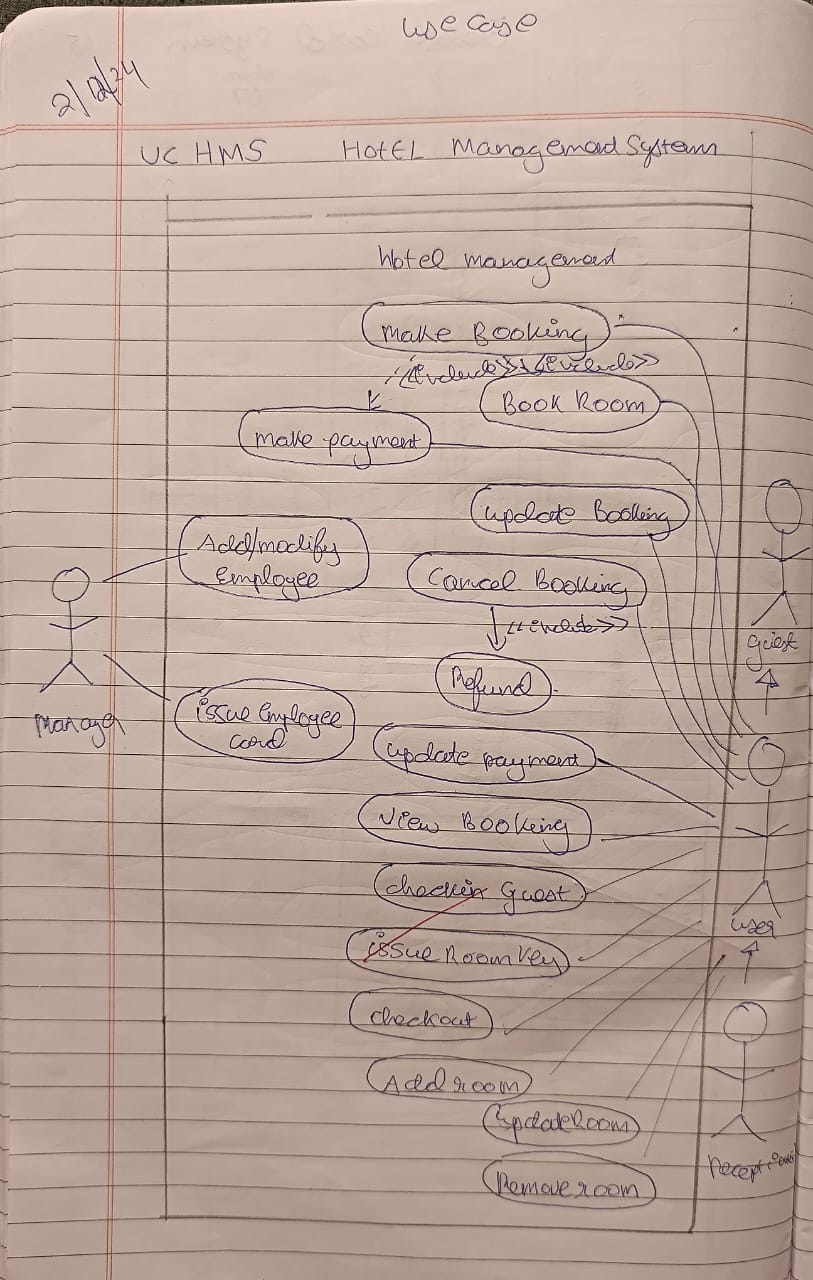 use case
2/12/24
UC HMS Hotel Managemand System
Hotel managemand
Make Booking
<<include>> <<include>>
Book Room
make payment
update Booking
Add/modify
Employee
Cancel Booking
<<include>>
guest
Refund
Manager
issue employee
card
update payment
View Booking
checkin guest
user
issue Room key
checkout
Add room
update Room
Receptionist
Remove room